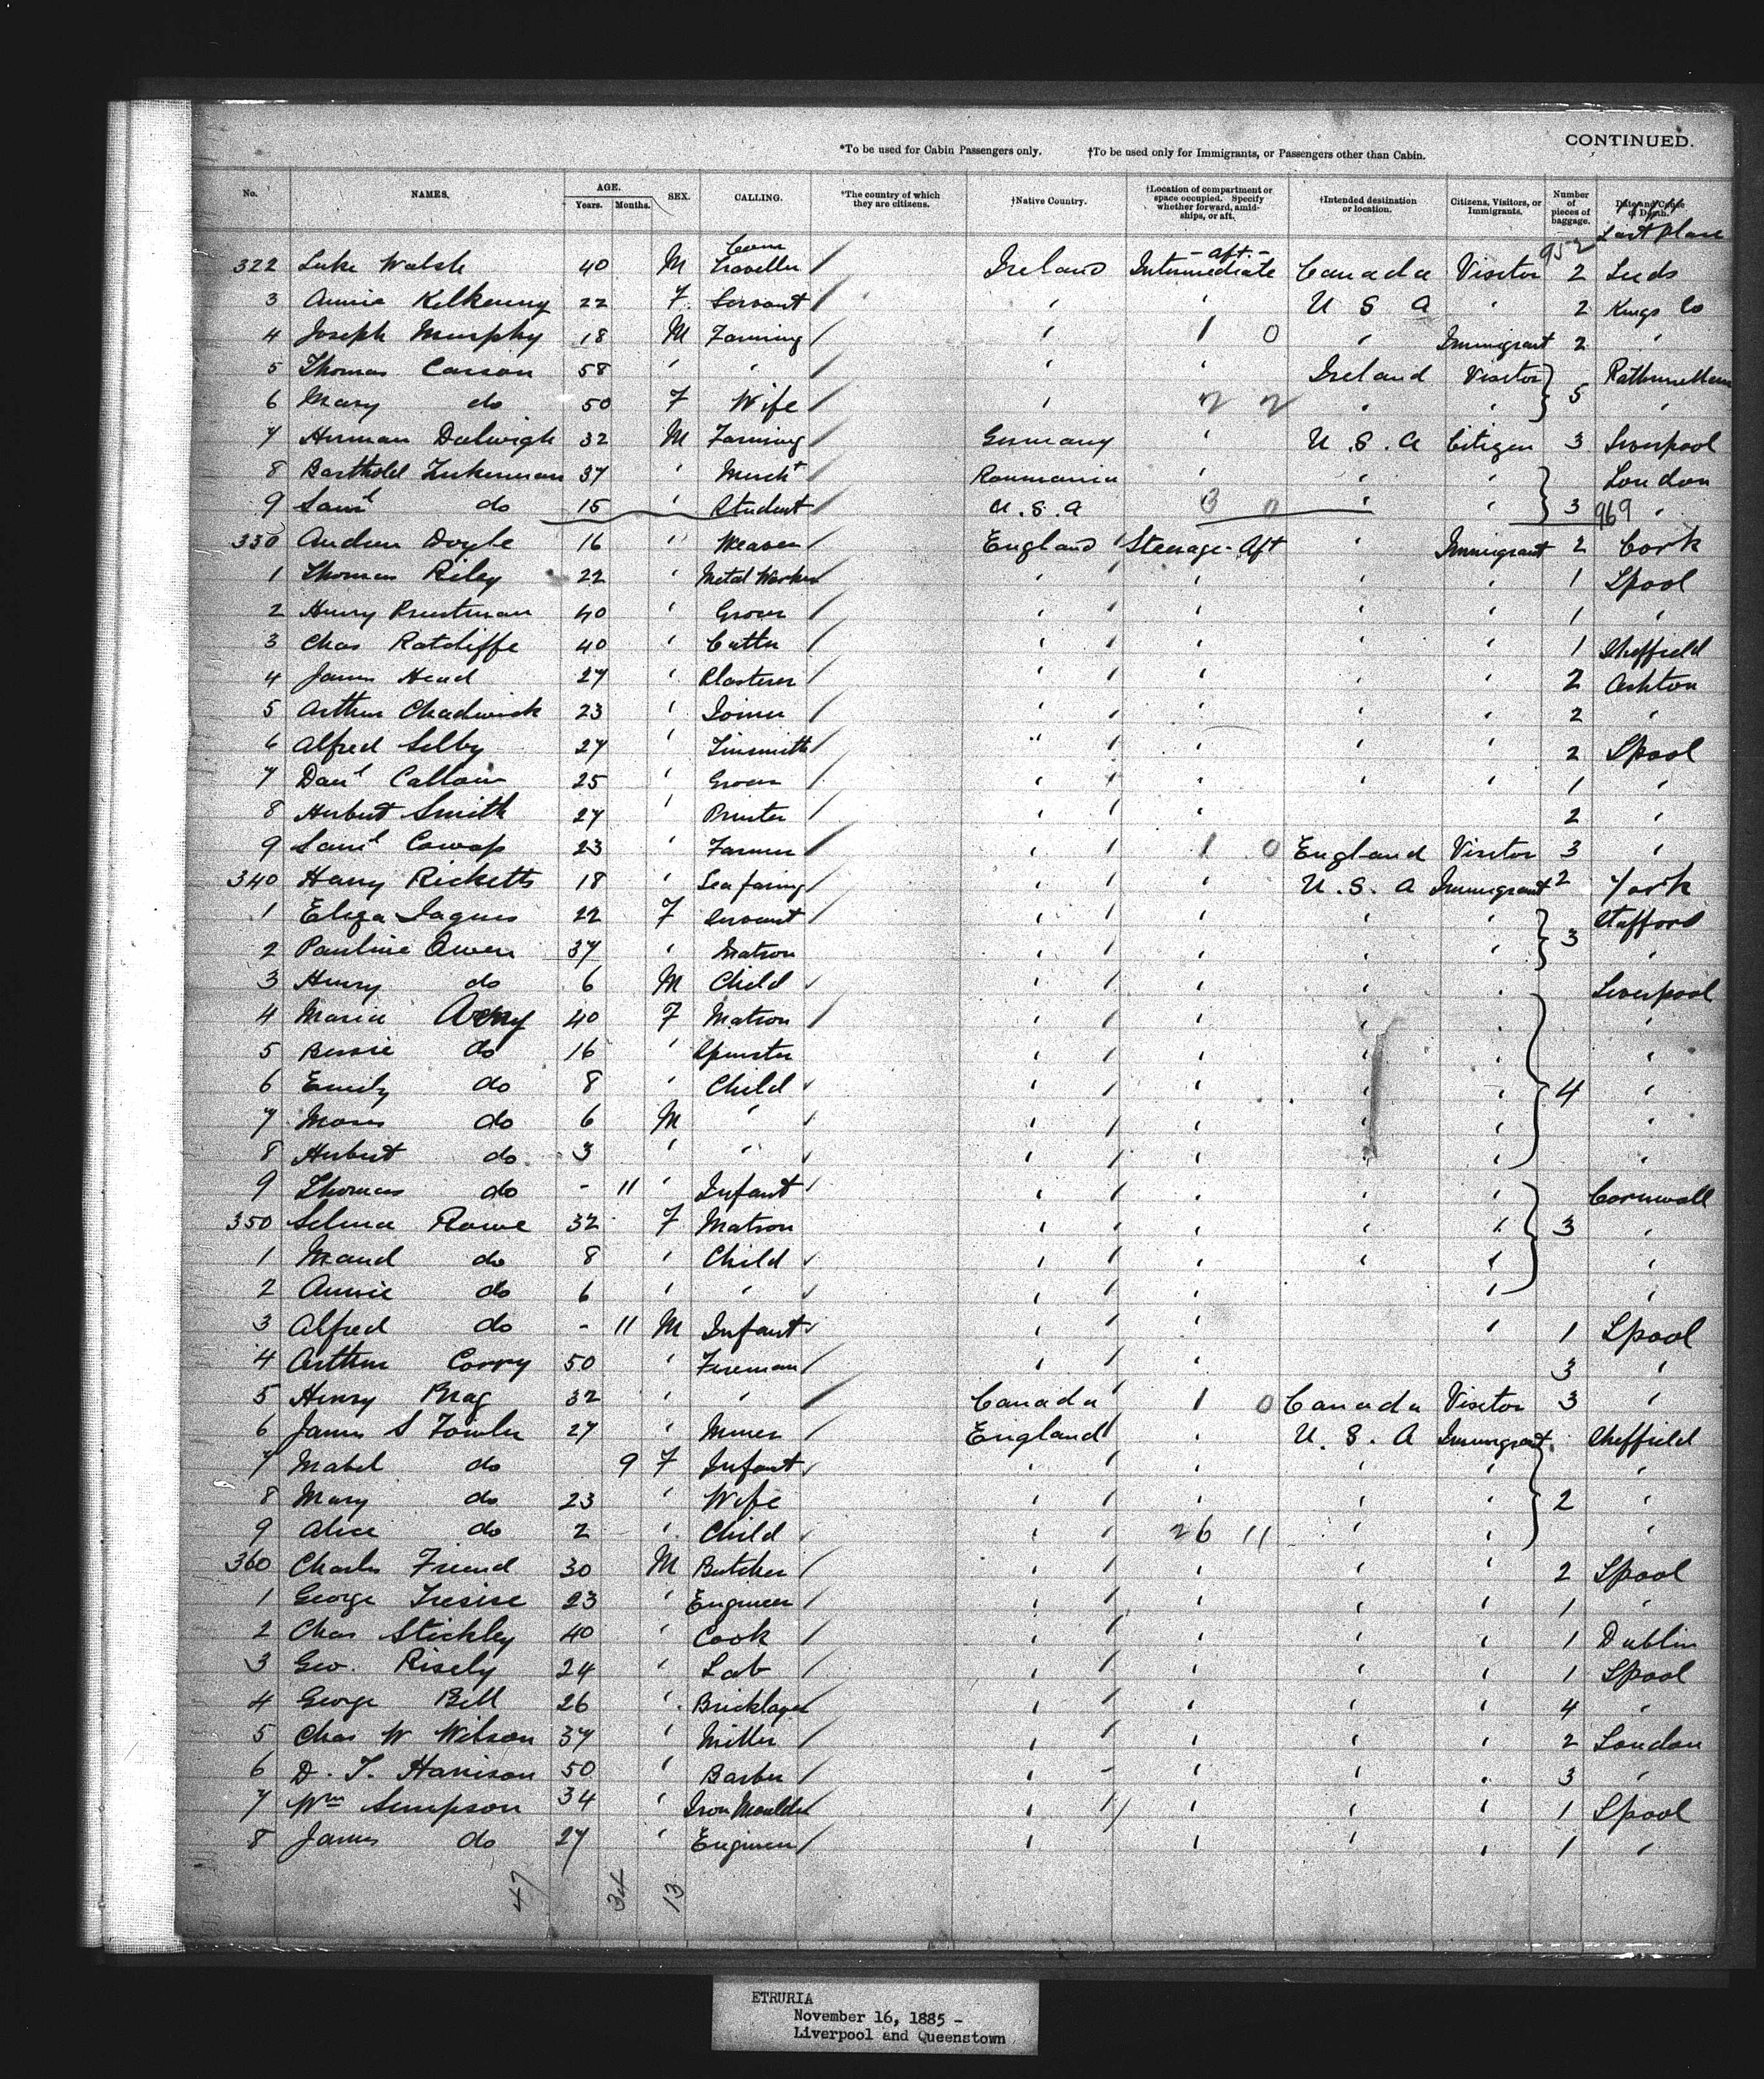 CONTINUED.
*To be used for Cabin Passengers only. †To be used only for Immigrants, or Passengers other than Cabin.
No. NAMES. AGE. Years. Months. SEX. CALLING. *The country of which they are citizens. †Native Country. †Location of compartment or space occupied. Specify whether forward, amidships, or aft. †Intended destination or location. Citizens, Visitors, or Immigrants. Number of pieces of baggage. Date and Cause of Death.
Last Place
952
322 Luke Walsh 40 M Com Traveller / Ireland - aft. - Intermediate Canada Visitor 2 Leeds
3 Annie Kilkenny 22 F Servant / ' ' U S A ' 2 Kings Co
4 Joseph Murphy 18 M Farming / ' 1 0 ' Immigrant 2 '
5 Thomas Carson 58 ' ' / ' ' Ireland Visitor
6 Mary do 50 F Wife / ' ' ' 5 '
7 Herman 32 M Farming / Germany ' U. S. A Citizen 3 Liverpool
8 Barthold Zukerman 37 ' Mercht Roumania ' ' ' London
9 Saml do 15 ' Student / U. S. A 3 0 ' ' 3 969 '
330 Andrew Doyle 16 ' Weaver / England / Steerage - Aft ' Immigrant 2 Cork
1 Thomas Riley 22 ' Metal Worker ' / ' ' ' 1 Lpool
2 Henry Priestman 40 ' Grocer / ' / ' ' ' 1 '
3 Chas Ratcliffe 40 ' Cutler / ' / ' ' ' 1 Sheffield
4 James Head 27 ' Plasterer / ' / ' ' ' 2 Ashton
5 Arthur Chadwick 23 ' Joiner / ' / ' ' ' 2 '
6 Alfred Selby 27 ' Tinsmith / " / ' ' ' 2 Lpool
7 Danl 25 ' Grocer / ' / ' ' ' 1 '
8 Herbert Smith 27 ' Printer / ' / ' 2 '
9 Saml Cowap 23 ' Farmer / ' / 1 0 England Visitor 3 '
340 Harry Ricketts 18 ' Seafaring / ' / ' U. S. A Immigrant 2 York
1 Eliza Jaques 22 F Servant / ' / ' ' ' Stafford
2 Pauline Owen 37 ' Matron ' / ' ' ' 3 '
3 Henry do 6 M Child ' / ' ' ' Liverpool
4 Maria 40 F Matron / ' / ' ' ' '
5 Bessie do 16 ' Spinster ' / ' ' ' '
6 Emily do 8 ' Child ' / ' ' ' 4 '
7 Moses do 6 M ' ' / ' ' ' '
8 Herbert do 3 ' ' ' / ' ' ' '
9 Thomas do - 11 ' Infant ' / ' ' ' Cornwall
350 Selina Rowe 32 F Matron ' / ' ' ' 3 '
1 Maud do 8 ' Child ' / ' ' ' '
2 Annie do 6 ' ' ' / ' ' '
3 Alfred do - 11 M Infant ' / ' ' 1 Lpool
4 Arthur Corry 50 ' Fireman / ' / ' 3 '
5 Henry 32 ' ' / Canada / 1 0 Canada Visitor 3 '
6 James S Fowler 27 ' Miner / England / ' U. S. A Immigrant Sheffield
7 Mabel do 9 F Infant ' / ' ' ' '
8 Mary do 23 ' Wife ' / ' ' ' 2 '
9 Alice do 2 ' Child ' / 26 11 ' ' '
360 Charles Friend 30 M Butcher / ' / ' ' ' 2 Lpool
1 George Tresise 23 ' Engineer / ' / ' ' ' 1 '
2 Chas Stickley 40 ' Cook / ' / ' ' ' 1 Dublin
3 Geo. Risely 24 ' Lab / ' / ' ' ' 1 Lpool
4 George Bell 26 ' Bricklayer ' / ' ' ' 4 '
5 Chas W Wilson 37 ' Miller / ' / ' ' ' 2 London
6 D. T. Harrison 50 ' Barber / ' - ' ' ' 3 '
7 Wm Simpson 34 ' Iron Moulder ' / ' ' ' 1 Lpool
8 James do 27 ' Engineer / ' ' ' ' 1 '
47 34 13
ETRURIA
November 16, 1885 -
Liverpool and Queenstown